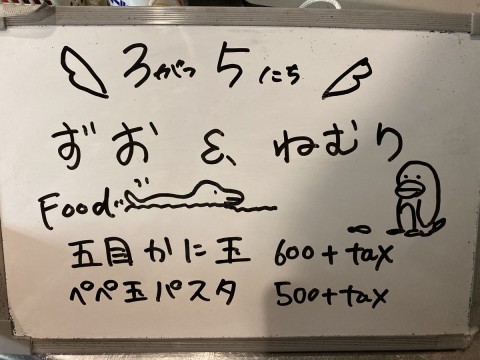 3がつ5にち
ずお &、ねむり
Food
五目かに玉 600+tax
ペペ玉パスタ 500+tax